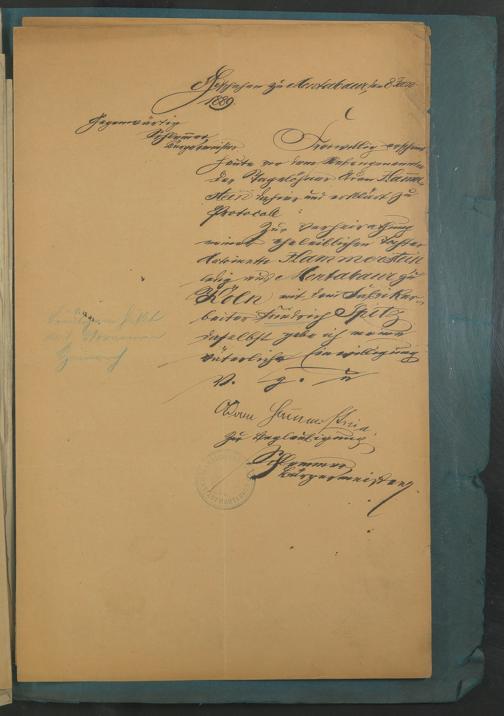 Geschehen zu Montabaur, den 8. 
1889
Gegenwärtig
Bürgermeister
Freiwillig erschien
heute vor dem Nebengenannten
der Tagelöhner Adam Hammer
stein dahier und erklärt zu
Protocoll:
Zur Verheirathung
meiner ehelichen Tochter
Antoinette Hammerstein
ledig aus Montabaur zu
Köln mit dem Fabrikar-
beiter Friedrich Spitz
daselbst gebe ich meine
väterliche Einwilligung
V. g. u
Adam Hammerstein
Zur Beglaubigung
Bürgermeister